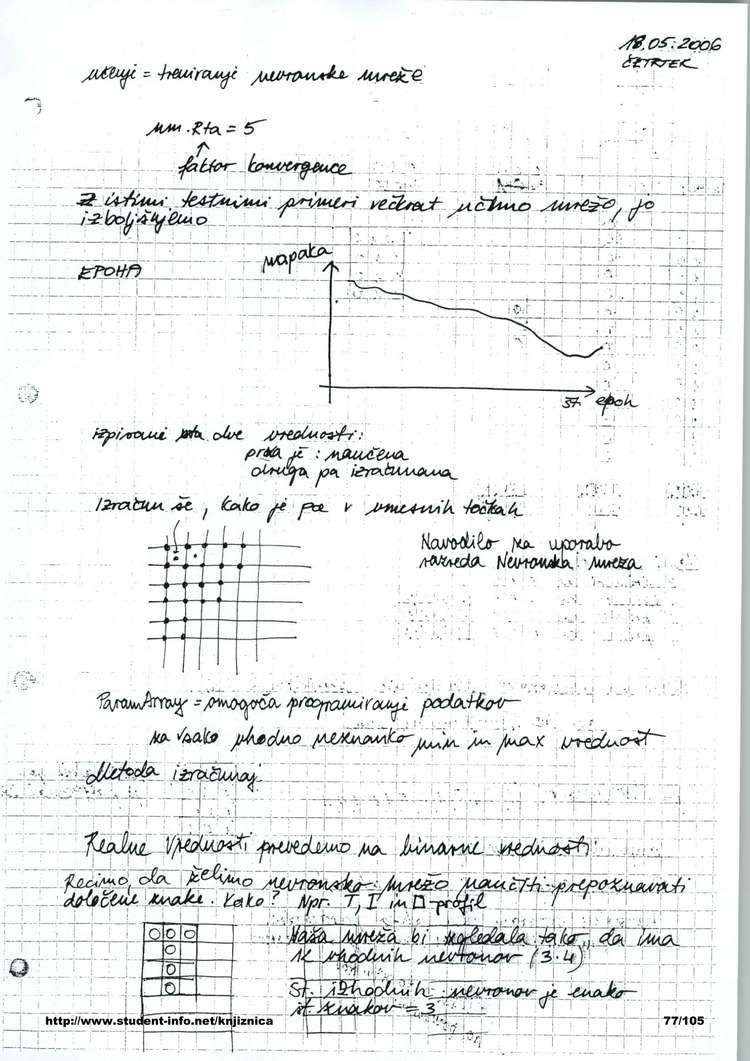 18.05.2006
ČETRTEK
učenje = treniranje nevronske mreže
nm.Rta = 5
faktor konvergence
Z istimi testnimi primeri večkrat učimo mrežo, jo
izboljšujemo
EPOHA
napaka
št. epoh
izpisani sta dve vrednosti:
prva je : naučena
druga pa izračunana
Izračun še, kako je pa v vmesnih točkah
Navodilo za uporabo
razreda Nevronska mreža
ParamArray = omogoča programiranje podatkov
za vsako vhodno neznanko min in max vrednost
Metoda izračunaj
Realne vrednosti prevedemo na binarne vrednosti
Recimo, da želimo nevronsko mrežo naučiti prepoznavati
določene znake. Kako? Npr. T, I in □-profil
Naša mreža bi zgledala tako, da ima
12 vhodnih nevronov (3·4)
Št. izhodnih nevronov je enako
št. znakov = 3
http://www.student-info.net/knjiznica
77/105